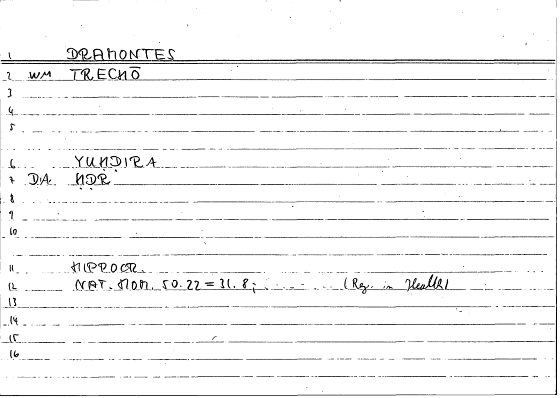 1 DRAMONTES
2 WM TRECHŌ
3
4
5
6 YUḤḌIRA
7 DA ḤḌR
8
9
10
11 HIPPOCR.
12 NAT. HOM. 50.22 = 31.8; (Reg. in Health)
13
14
15
16